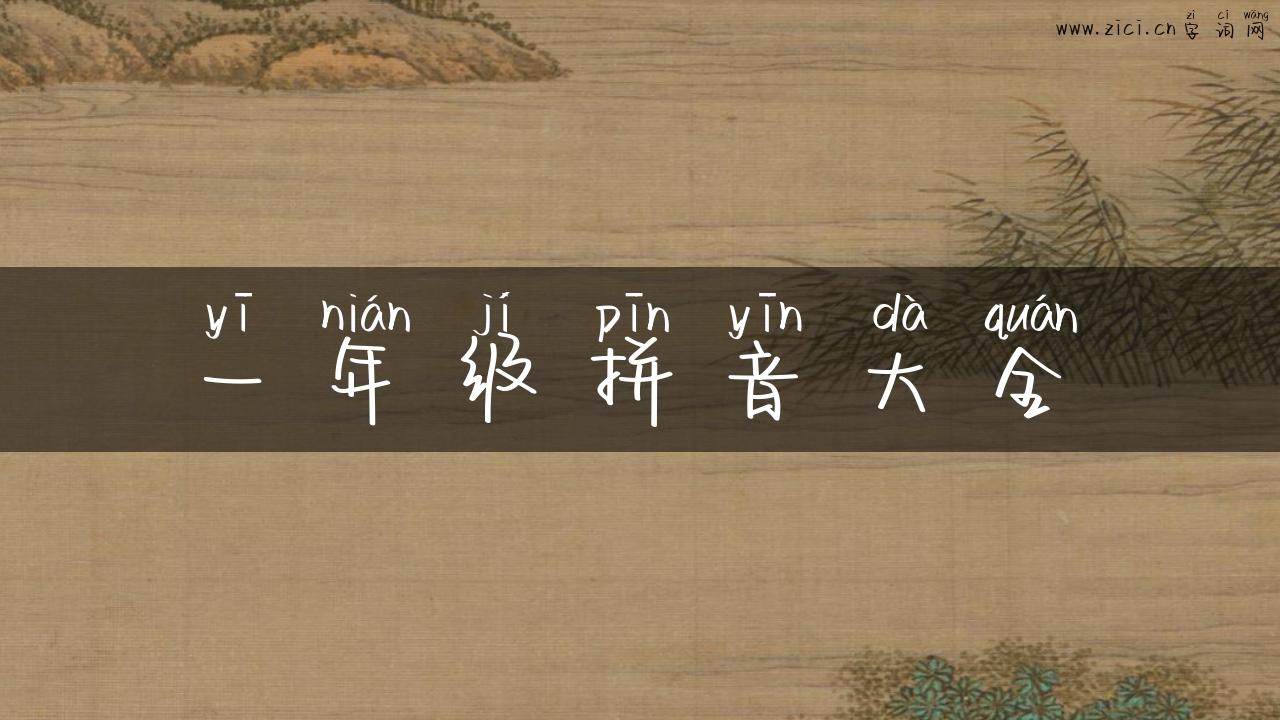 zì cí wǎng
www.zici.cn 字词网
yī nián jí pīn yīn dà quán
一年级拼音大全